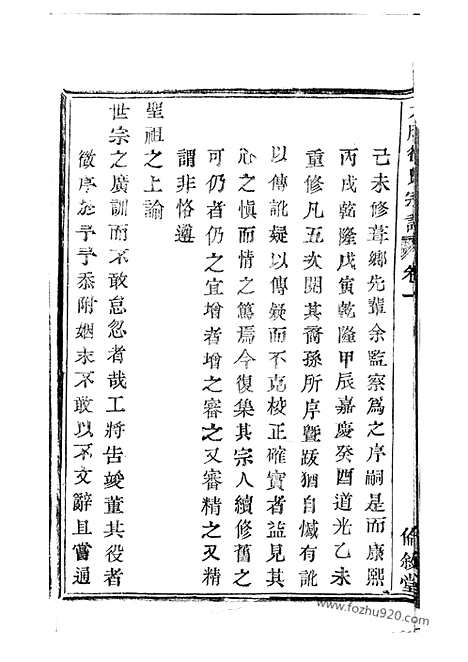 己未修葺鄉先輩余監察為之序嗣是而康熙
丙戌乾隆戊寅乾隆甲辰嘉慶癸酉道光乙未
重修凡五次閱其裔孫所序暨跋猶自憾有訛
以傳訛疑以傳疑而不克校正確實者益見其
心之慎而情之篤焉今復集其宗人續修舊之
可仍者仍之宜增者增之審之又審精之又精
謂非恪遵
聖祖之上諭
世宗之廣訓而不敢怠忽者哉工將告竣董其役者
徵序於予予忝附姻末不敢以不文辭且嘗通
氏宗譜 卷一
倫敘堂
www.fozhu920.com